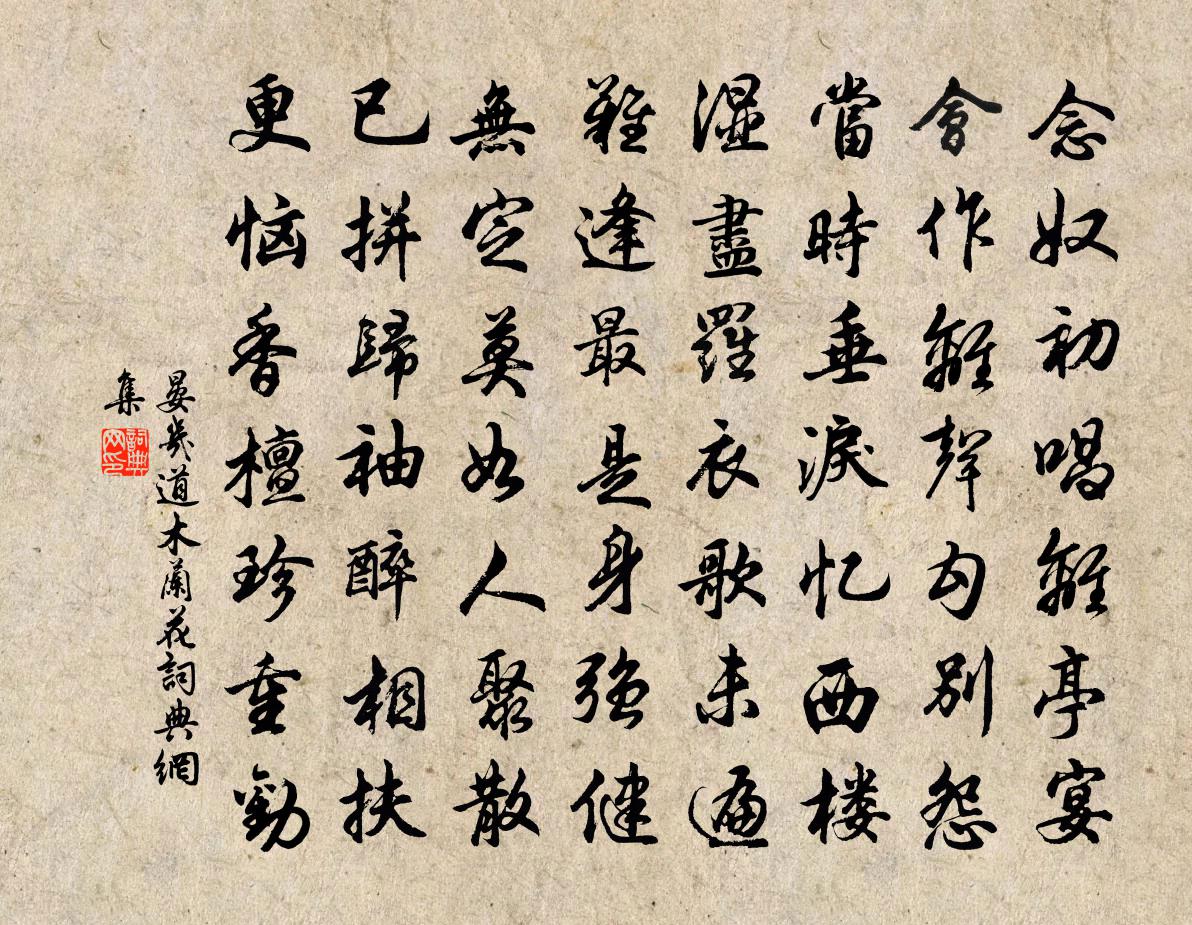 念奴初唱離亭宴
會作離聲勾別怨
當時垂淚忆西楼
湿盡羅衣歌未遍
難逢最是身強健
無定莫如人聚散
已拼歸袖醉相扶
更恼香檀珍重勸
晏幾道木蘭花詞典網
集
詞典网印